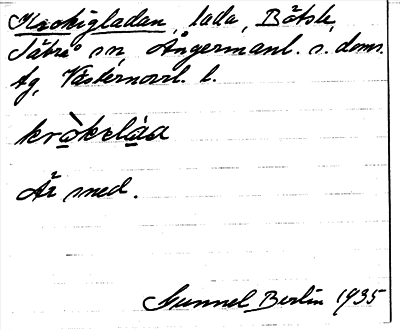 Krokigladan, lada, Båtsk,
Säbrå sn Ångermanl. s. doms.
tg, Västernorrl. l.
kròkɐláda
Är med.
Gunnel Berlin 1935